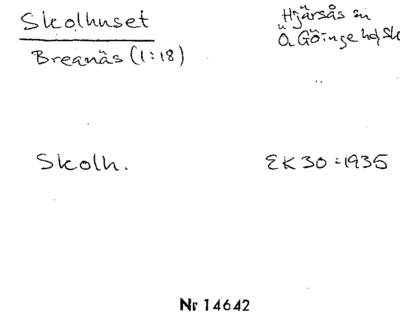 Skolhuset
Hjärsås sn
Breanäs (1:18)
Ö Göinge hd, Sk
Skolh.
EK 30 :1935
Nr 14642